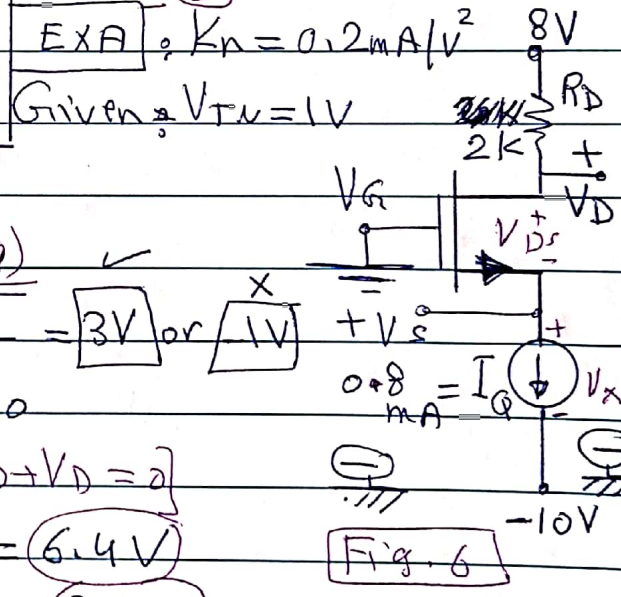 EXA : Kn = 0.2mA/V² 8V
Given : VTN = 1V RD
2K +
VG VD
VDS + -
= 3V or -1V X + VS +
0.8 mA = IQ VX
0 -
+VD = 0]
= 6.4V -10V
Fig. 6